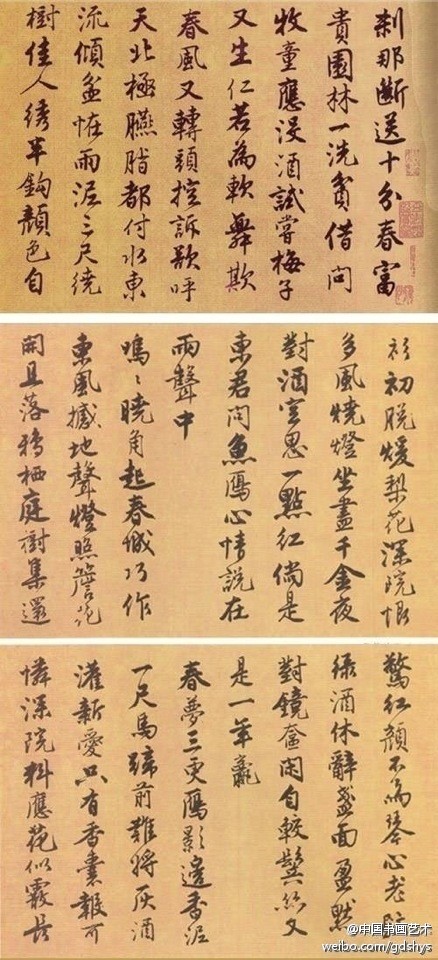 刹那斷送十分春富
貴園林一洗貧借問
牧童應没酒試嘗梅子
又生仁若為軟舞欺
春風又轉頭控訴歌呼
天北極臙脂都付水東
流傾盆恠雨泥三尺繞
樹佳人綉半鉤顏色自
衫初脱煖梨花深院恨
多風燒燈坐盡千金夜
對酒空思一點紅倘是
東君問魚鴈心情說在
雨聲中
嗚〻曉角起春城巧作
東風撼地聲燈照簷花
開且落鴉栖庭樹集還
驚紅顏不為琴心老
綠酒休辭盞面盈默
對鏡奩閑自較鬢絲又
是一年
春夢三更鴈影邊香泥
一尺馬蹄前難將灰酒
灌新愛只有香囊報可
憐深院料應花似霰長
@中国书画艺术
weibo.com/gdshys